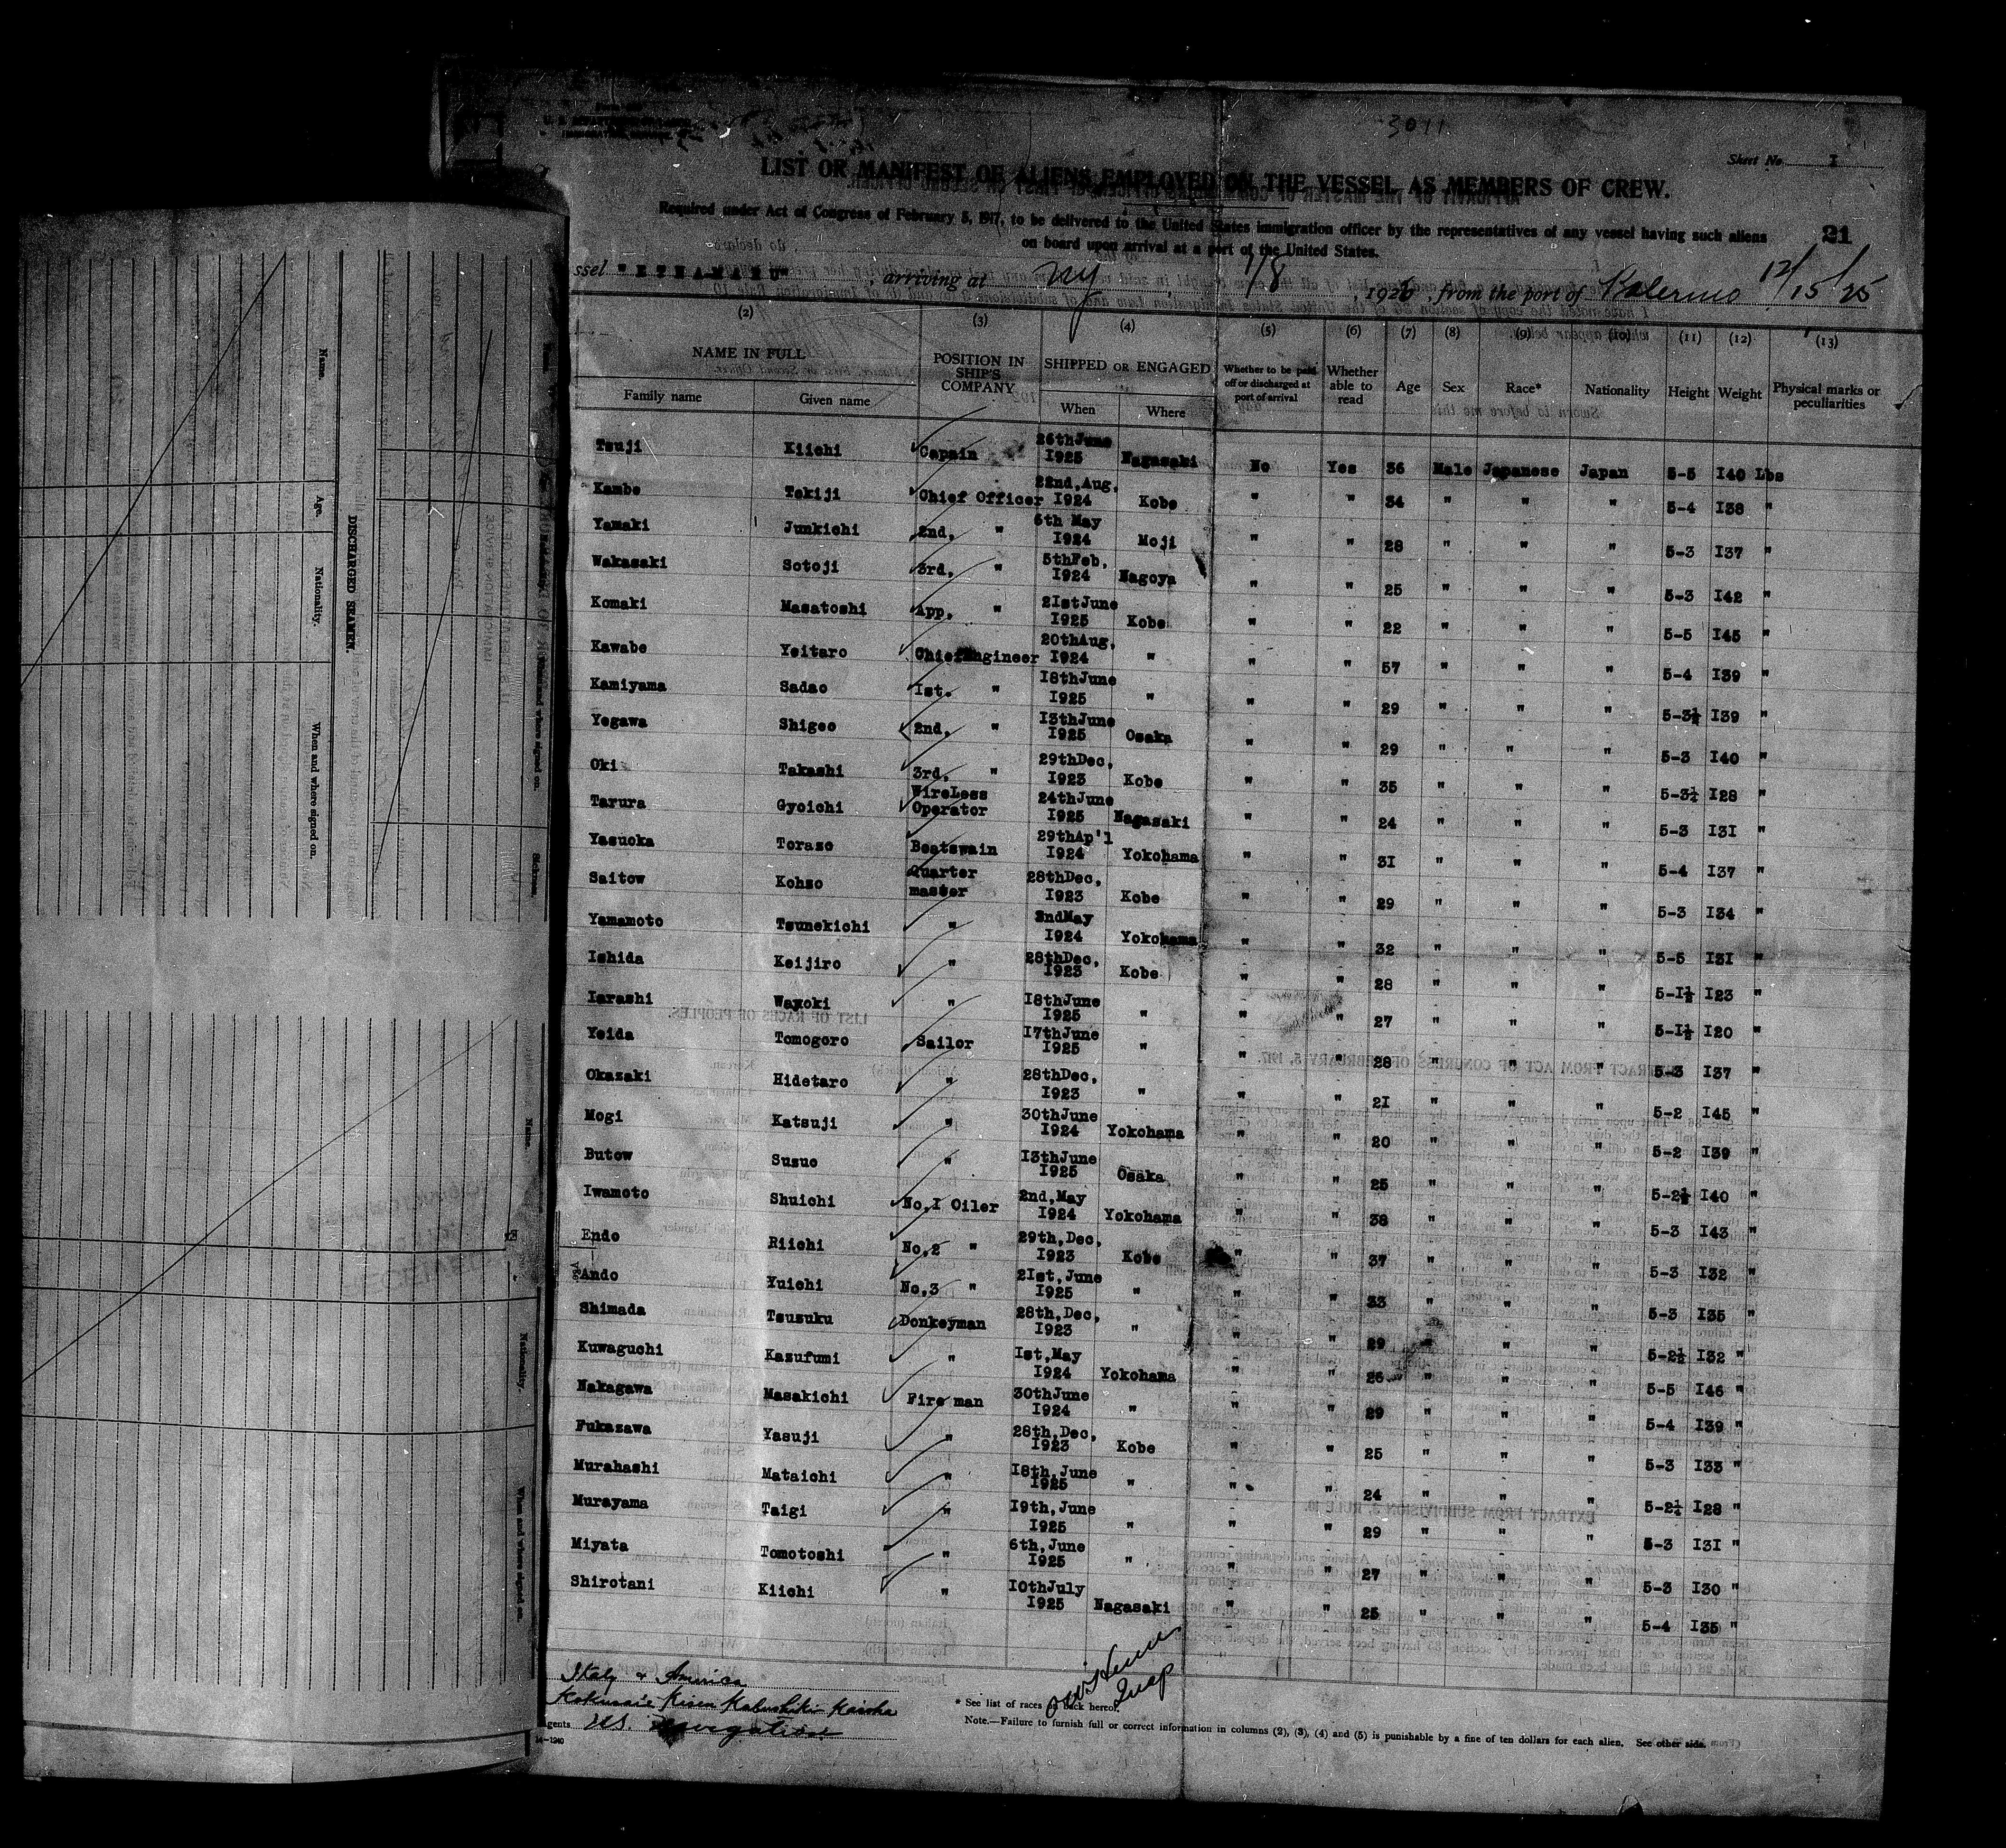 3011
Sheet No. I
LIST OR MANIFEST OF ALIENS EMPLOYED ON THE VESSEL AS MEMBERS OF CREW.
Required under Act of Congress of February 5, 1917, to be delivered to the United States immigration officer by the representatives of any vessel having such aliens
on board upon arrival at a port of the United States.
21
ssel "ETNA-MARU", arriving at NY, 1/8, 1926, from the port of Palermo 12/15/25
(2) (3) (4) (5) (6) (7) (8) (9) (10) (11) (12) (13)
NAME IN FULL POSITION IN SHIP'S COMPANY SHIPPED OR ENGAGED Whether to be paid off or discharged at port of arrival Whether able to read Age Sex Race* Nationality Height Weight Physical marks or peculiarities
Family name Given name When Where
Tsuji Kiichi Capain 26thJune I925 Nagasaki No Yes 36 Male Japanese Japan 5-5 I40 Lbs
Kambe Tokiji Chief Officer 22nd,Aug, I924 Kobe " " 34 " " " 5-4 I38 "
Yamaki Junkichi 2nd, " 6th May I924 Moji " " 28 " " " 5-3 I37 "
Wakasaki Sotoji 3rd, " 5thFeb, I924 Nagoya " " 25 " " " 5-3 I42 "
Komaki Masatoshi App, " 2IstJune I925 Kobe " " 22 " " " 5-5 I45 "
Kawabe Yeitaro ChiefEngineer 20thAug, I924 " " " 57 " " " 5-4 I39 "
Kamiyama Sadao Ist. " I8thJune I925 " " " 29 " " " 5-3½ I39 "
Yegawa Shigeo 2nd, " I3thJune I925 Osaka " " 29 " " " 5-3 I40 "
Oki Takashi 3rd, " 29thDec, I923 Kobe " " 35 " " " 5-3½ I28 "
Tarura Gyoichi WireLess Operator 24thJune I925 Nagasaki " " 24 " " " 5-3 I3I "
Yasuoka Torazo Boatswain 29thAp'l I924 Yokohama " " 3I " " " 5-4 I37 "
Saitow Kohzo Quarter master 28thDec, I923 Kobe " " 29 " " " 5-3 I34 "
Yamamoto Tsunekichi " 2ndMay I924 Yokohama " " 32 " " " 5-5 I3I "
Ishida Keijiro " 28thDec, I923 Kobe " " 28 " " " 5-I½ I23 "
Iarashi Wayoki " I8thJune I925 " " " 27 " " " 5-I½ I20 "
Yeida Tomogoro Sailor I7thJune I925 " " " 28 " " " 5-3 I37 "
Okazaki Hidetaro " 28thDec, I923 " " " 2I " " " 5-2 I45 "
Mogi Katsuji " 30thJune I924 Yokohama " " 20 " " " 5-2 I39 "
Butow Susuo " I3thJune I925 Osaka " " 25 " " " 5-2½ I40 "
Iwamoto Shuichi No,I Oiler 2nd,May I924 Yokohama " " 38 " " " 5-3 I43 "
Endo Riichi No,2 " 29th,Dec, I923 Kobe " " 37 " " " 5-3 I32 "
Ando Yuichi No,3 " 2Ist,June I925 " " " 33 " " " 5-3 I35 "
Shimada Tsuzuku Donkeyman 28th,Dec, I923 " " " 29 " " " 5-2½ I32 "
Kuwaguchi Kazufumi " Ist,May I924 Yokohama " " 26 " " " 5-5 I46 "
Nakagawa Masakichi Fire man 30thJune I924 " " " 29 " " " 5-4 I39 "
Fukazawa Yasuji " 28th,Dec, I923 Kobe " " 25 " " " 5-3 I33 "
Murahashi Mataichi " I8th,June I925 " " " 24 " " " 5-2¼ I28 "
Murayama Taigi " I9th,June I925 " " " 29 " " " 5-3 I3I "
Miyata Tomotoshi " 6th,June I925 " " " 27 " " " 5-3 I30 "
Shirotani Kiichi " I0thJuly I925 Nagasaki " " 25 " " " 5-4 I35 "
Italy & America
Kokusaie Kisen Kabushiki Kaisha
gents US Navigation
14-1240
Insp
* See list of races on back hereof.
Note.—Failure to furnish full or correct information in columns (2), (3), (4) and (5) is punishable by a fine of ten dollars for each alien. See other side.
DISCHARGED SEAMEN.
Name. Age. Nationality. When and where signed on.
Name. Nationality. When and where signed on.